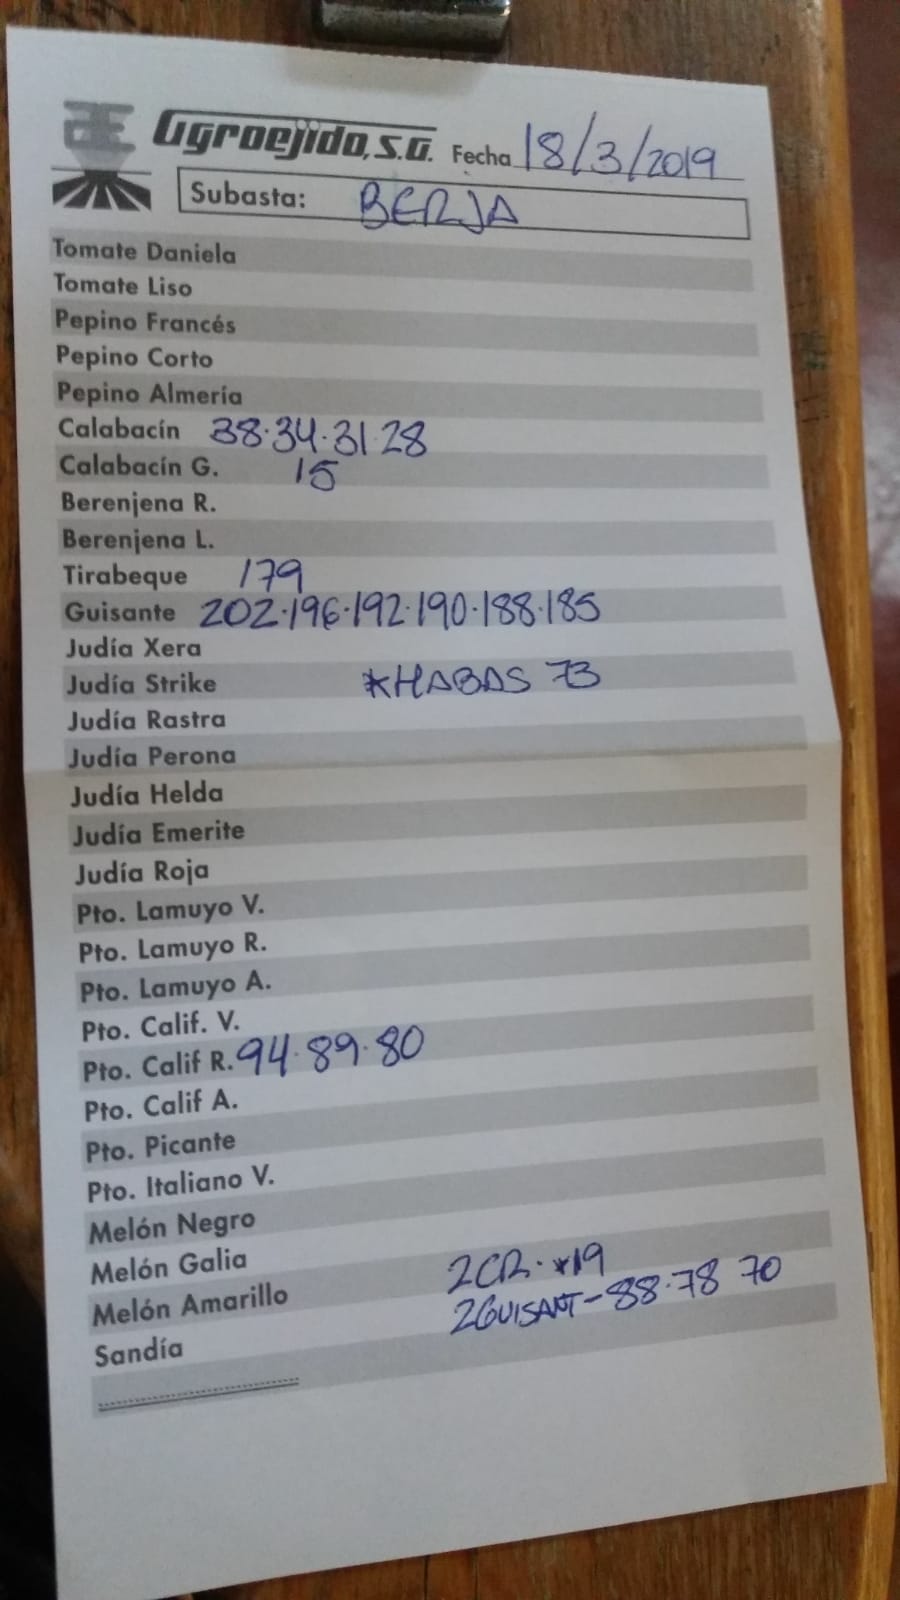 Agroejido, S.A. Fecha 18/3/2019
Subasta: BERJA
Tomate Daniela
Tomate Liso
Pepino Francés
Pepino Corto
Pepino Almería
Calabacín 38·34·31·28
Calabacín G. 15
Berenjena R.
Berenjena L.
Tirabeque 179
Guisante 202·196·192·190·188·185
Judía Xera
Judía Strike *HABAS 73
Judía Rastra
Judía Perona
Judía Helda
Judía Emerite
Judía Roja
Pto. Lamuyo V.
Pto. Lamuyo R.
Pto. Lamuyo A.
Pto. Calif. V.
Pto. Calif R. 94·89·80
Pto. Calif A.
Pto. Picante
Pto. Italiano V.
Melón Negro
Melón Galia 2CR·*19
Melón Amarillo 2GUISANT-88·78 70
Sandía